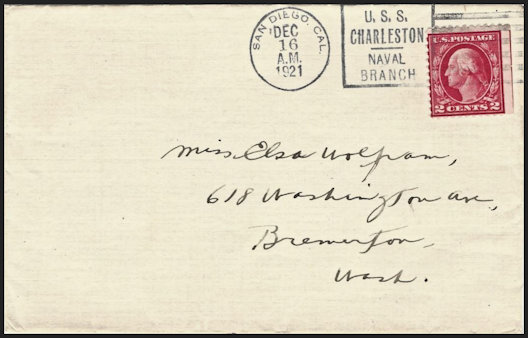 SAN DIEGO, CAL.
DEC
16
A.M.
1921
U. S. S.
CHARLESTON
NAVAL
BRANCH
U.S. POSTAGE
2 CENTS 2
Miss Elsa Wolfram,
618 Washington ave,
Bremerton,
Wash.